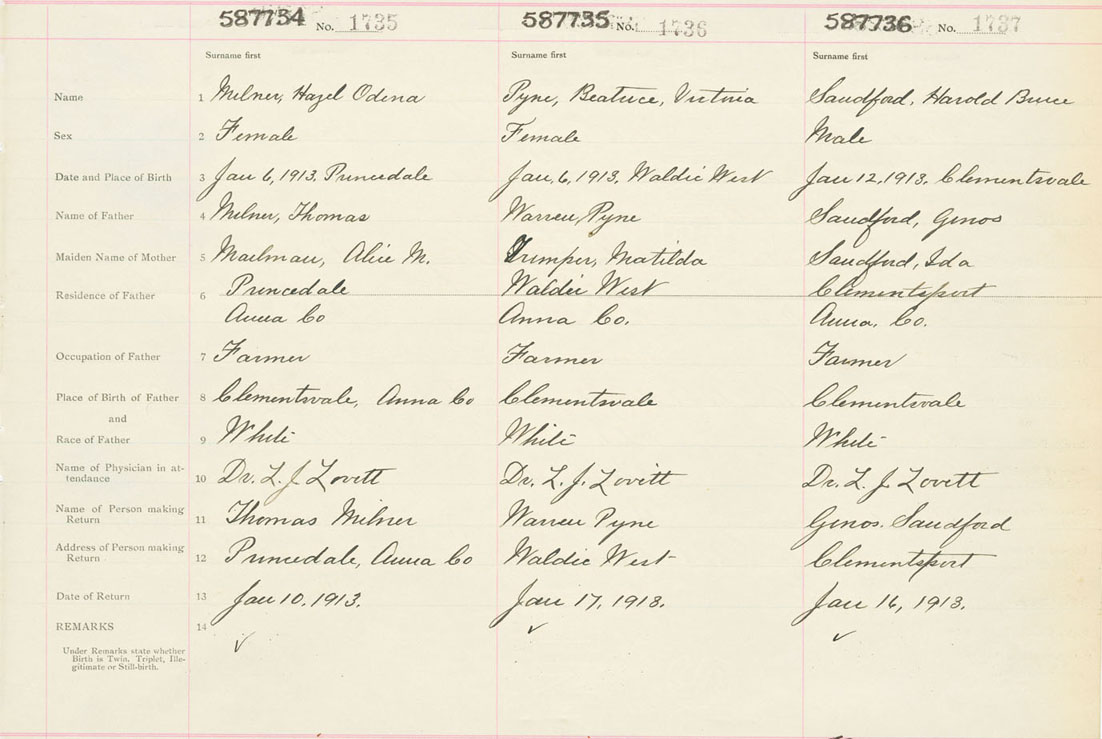 587734 No. 1735 587735 No. 1736 587736 No. 1737
Surname first Surname first Surname first
Name 1 Milner, Hazel Odena Pyne, Beatrice, Victoria Sandford, Harold Bruce
Sex 2 Female Female Male
Date and Place of Birth 3 Jan 6, 1913. Princedale Jan. 6, 1913. Waldic West Jan 12, 1913. Clementsvale
Name of Father 4 Milner, Thomas Warren, Pyne Sandford, Genos
Maiden Name of Mother 5 Mailman, Alice M. Trimper, Matilda Sandford, Ida
Residence of Father 6 Princedale Waldic West Clementsport
Anna Co Anna Co. Anna. Co.
Occupation of Father 7 Farmer Farmer Farmer
Place of Birth of Father 8 Clementsvale, Anna Co Clementsvale Clementsvale
and
Race of Father 9 White White White
Name of Physician in at-
tendance 10 Dr. L. J. Lovitt Dr. L. J. Lovitt Dr. L. J. Lovitt
Name of Person making
Return 11 Thomas Milner Warren Pyne Genos. Sandford
Address of Person making
Return 12 Princedale, Anna Co Waldic West Clementsport
Date of Return 13 Jan 10. 1913. Jan 17, 1913. Jan 16, 1913.
REMARKS 14
Under Remarks state whether
Birth is Twin, Triplet, Ille-
gitimate or Still-birth.